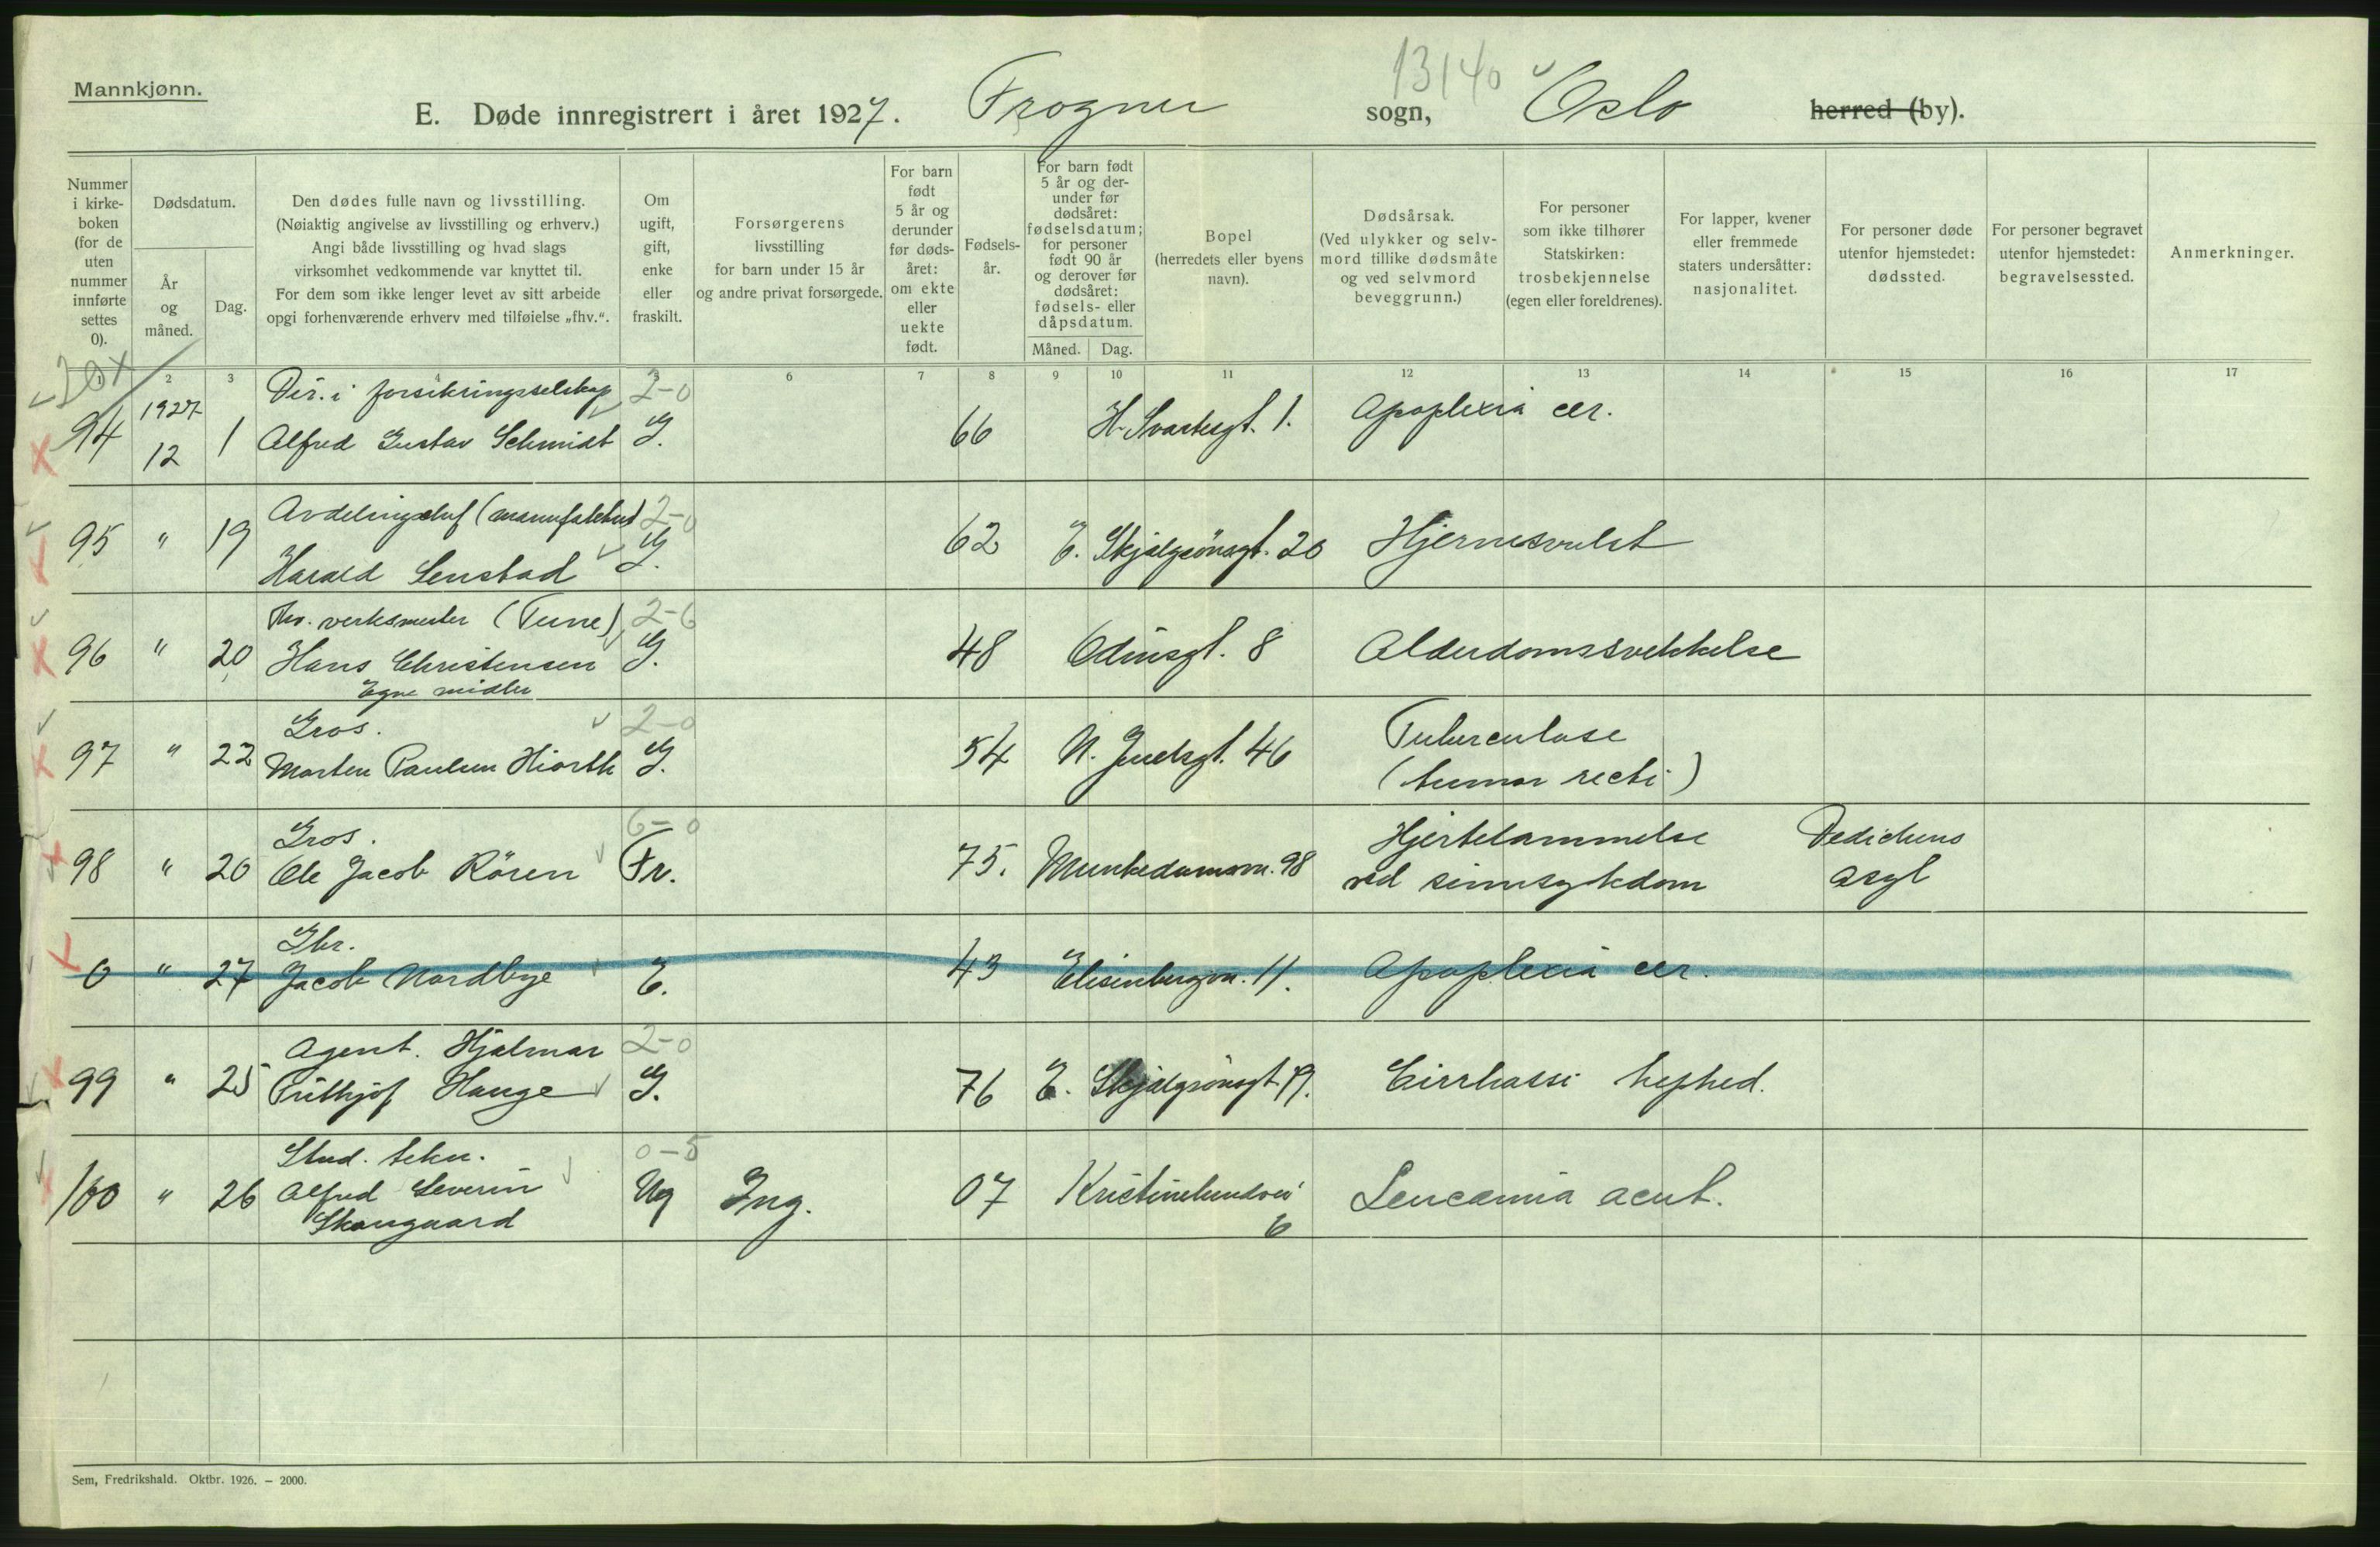 Mannkjønn.
13140
E. Døde innregistrert i året 1927. Frogner sogn, Oslo herred (by).
Nummer i kirkeboken (for de uten nummer innførte settes 0).
Dødsdatum.
År og måned.
Dag.
Den dødes fulle navn og livsstilling.
(Nøiaktig angivelse av livsstilling og erhverv.)
Angi både livsstilling og hvad slags
virksomhet vedkommende var knyttet til.
For dem som ikke lenger levet av sitt arbeide
opgi forhenværende erhverv med tilføielse „fhv.“.
Om ugift, gift, enke eller fraskilt.
Forsørgerens livsstilling for barn under 15 år og andre privat forsørgede.
For barn født 5 år og derunder før dødsåret: om ekte eller uekte født.
Fødselsår.
For barn født 5 år og derunder før dødsåret: fødselsdatum; for personer født 90 år og derover før dødsåret: fødsels- eller dåpsdatum.
Måned. Dag.
Bopel (herredets eller byens navn).
Dødsårsak.
(Ved ulykker og selvmord tillike dødsmåte og ved selvmord beveggrunn.)
For personer som ikke tilhører Statskirken: trosbekjennelse (egen eller foreldrenes).
For lapper, kvener eller fremmede staters undersåtter: nasjonalitet.
For personer døde utenfor hjemstedet: dødssted.
For personer begravet utenfor hjemstedet: begravelsessted.
Anmerkninger.
1 2 3 4 5 6 7 8 9 10 11 12 13 14 15 16 17
1927 Dir. i forsikringsselskap 2-0
94 12 1 Alfred Gustav Schmidt G. 66 H. Svartesgt. 1. Apoplexia cer.
Avdelingschef (manufaktur) 2-0
95 " 19 Harald Senstad G. 62 E. Skjalgsönsgt. 20 Hjernesvulst
Fhv. verksmester (Tune) 2-6
96 " 20 Hans Christensen G. 48 Odinsgt. 8 Alderdomssvekkelse
Egne midler
Gros. 2-0 Tuberculose
97 " 22 Morten Paulsen Hiorth G. 54 N. Juelsgt. 46 (tumor recti)
Gros. 6-0 Hjertelammelse Dedichens
98 " 20 Ole Jacob Rören Fr. 75. Munkedamsvn. 98 ved sinnsykdom asyl
Gbr.
0 " 27 Jacob Nordbye E. 43 Elisenbergvn. 11. Apoplexia cer.
Agent. Hjalmar 2-0
99 " 25 Frithjof Hauge G. 76 E. Skjalgsönsgt 19. Cirrhossi hephed.
Stud. tekn. 0-5
100 " 26 Alfred Severin Ug Ing. 07 Kristinelundvei Leucæmia acut.
Skougaard 6
Sem, Fredrikshald. Oktbr. 1926. – 2000.